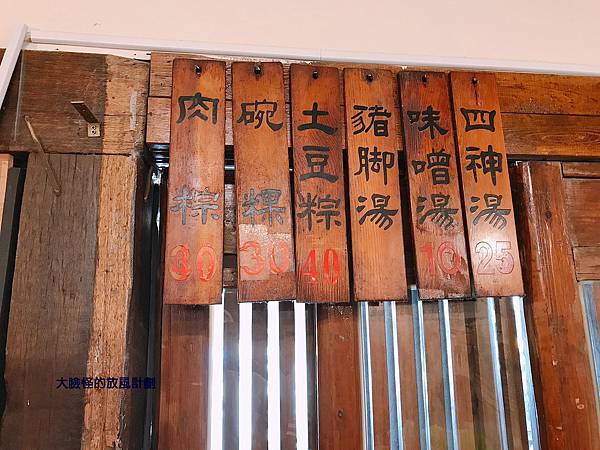 肉粽
30
碗粿
30
土豆粽
40
豬腳湯
味噌湯
10
四神湯
25
大臉怪的放風計劃